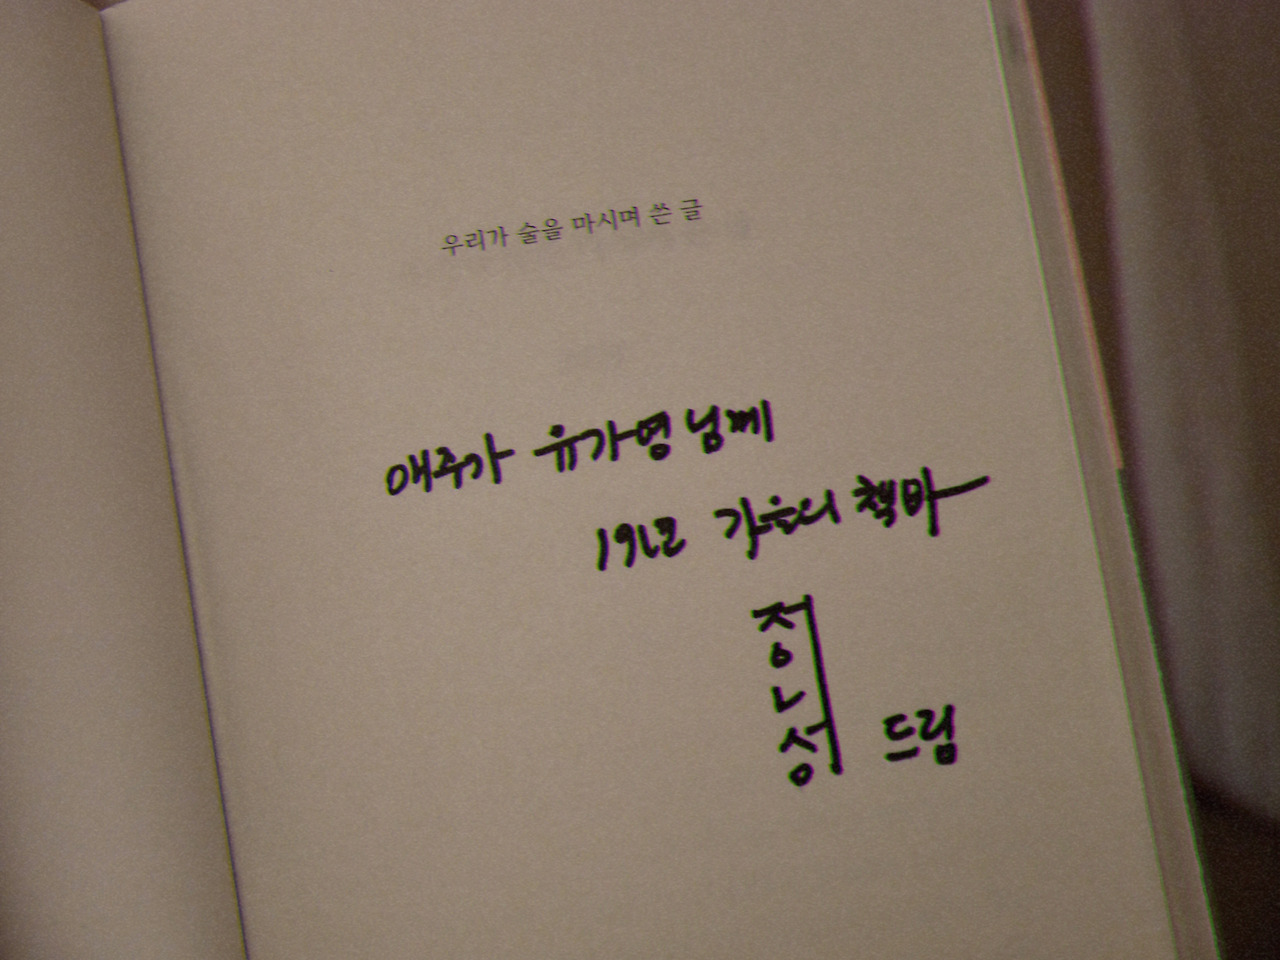 우리가 술을 마시며 쓴 글
애주가 유가영 님께
가을의 책바
정인성 드림